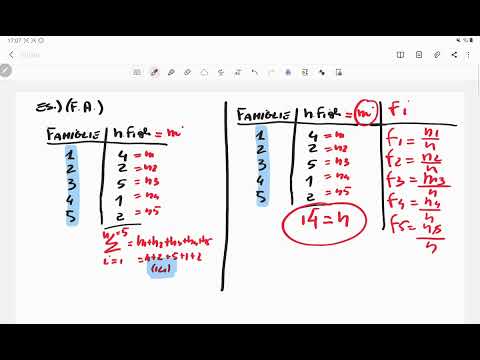 17:07
Es.) (F.A.)
FAMIGLIE | n Figli = ni
1 | 4 = n1
2 | 2 = n2
3 | 5 = n3
4 | 1 = n4
5 | 2 = n5
n=5
∑ = n1+n2+n3+n4+n5
i=1 = 4+2+5+1+2
(14)
FAMIGLIE | n Figli = ni | Fi
1 | 4 = n1 | f1 = n1/n
2 | 2 = n2 | f2 = n2/n
3 | 5 = n3 | f3 = n3/n
4 | 1 = n4 | f4 = n4/n
5 | 2 = n5 | f5 = n5/n
14 = n